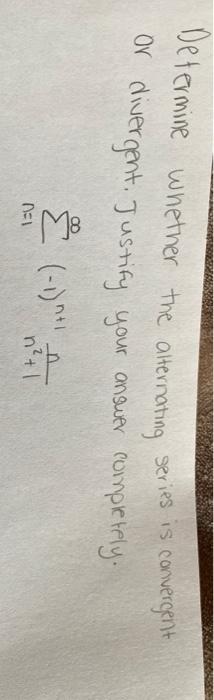 Determine whether the alternating series is convergent
or divergent. Justify your answer completely.
∞
∑ (-1)ⁿ⁺¹ n/(n²+1)
n=1